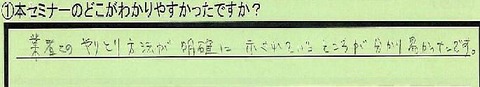 ①本セミナーのどこがわかりやすかったですか？
業者とのやりとり方法が明確に示されているところが分かり易かったです。